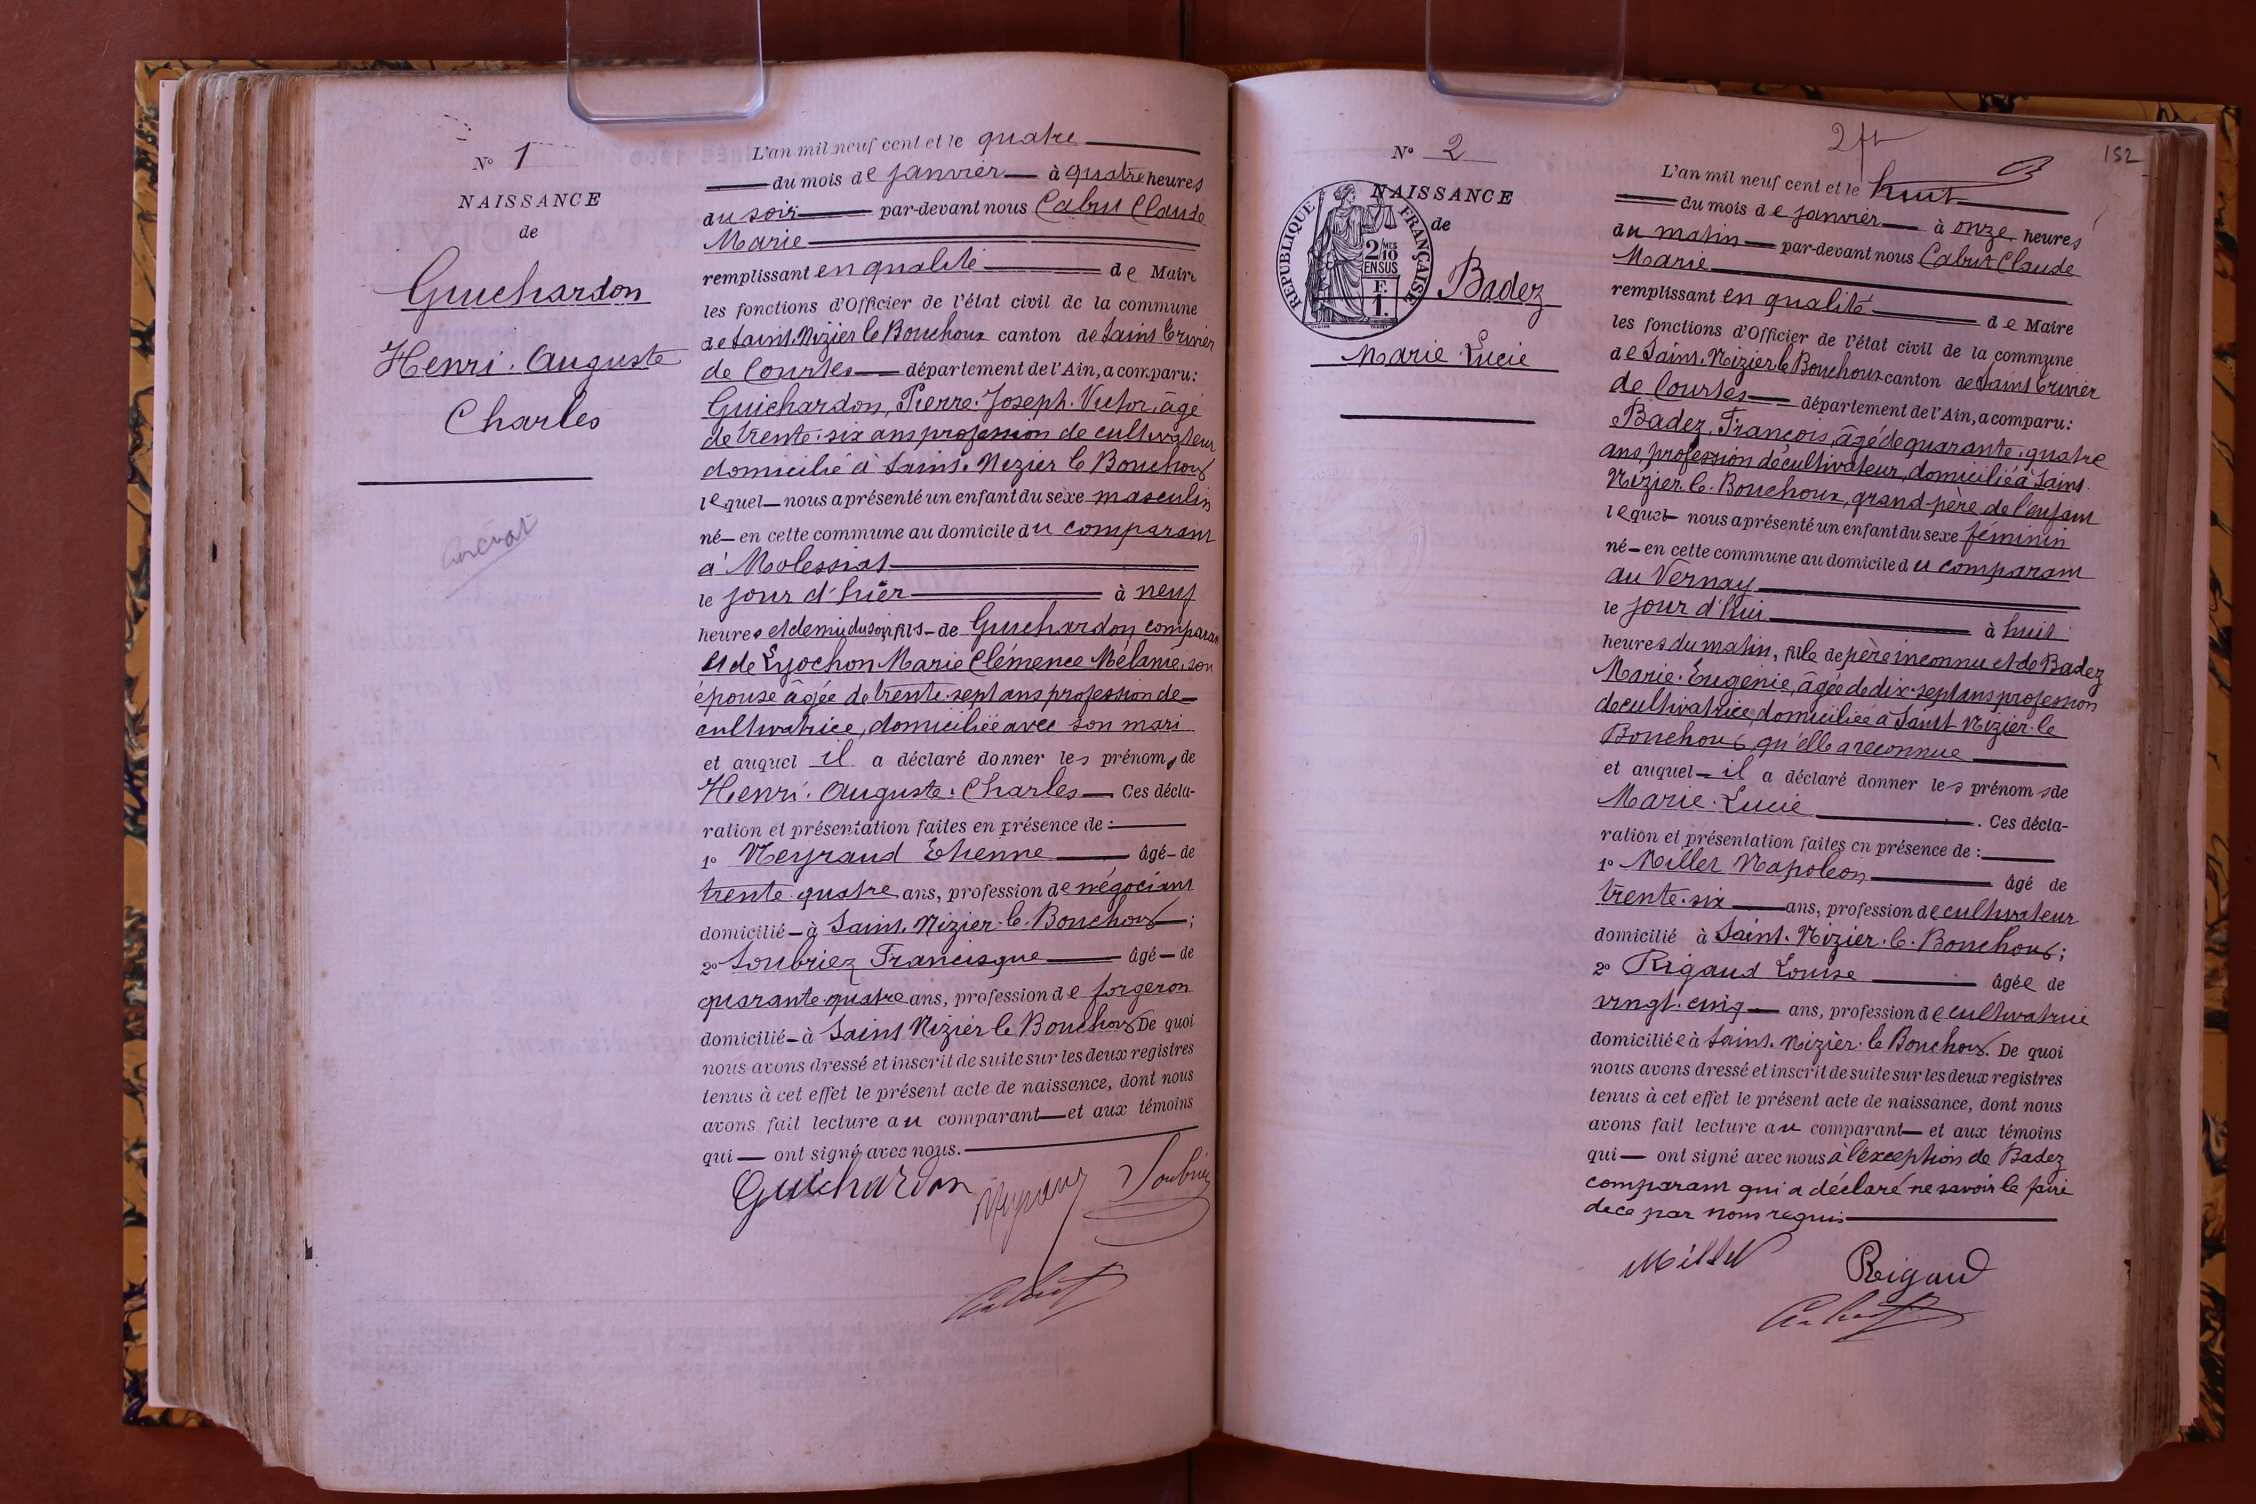 N° 1
NAISSANCE
de
Guichardon
Henri. Auguste
Charles
L'an mil neuf cent et le quatre
du mois de janvier à quatre heures
du soir par-devant nous Cabut Claude
Marie
remplissant en qualité de Maire
les fonctions d'Officier de l'état civil de la commune
de Saint. Nizier le Bouchoux canton de Saint Trivier
de Courtes département de l'Ain, a comparu:
Guichardon, Pierre. Joseph. Victor, âgé
de trente. six ans profession de cultivateur
domicilié à Saint. Nizier le Bouchoux
lequel nous a présenté un enfant du sexe masculin
né en cette commune au domicile du comparant
à Molessiat
le jour d'hier à neuf
heures et demie du soir fils de Guichardon comparant
et de Lyochon Marie Clémence Mélanie, son
épouse âgée de trente. sept ans profession de
cultivatrice, domiciliée avec son mari
et auquel il a déclaré donner les prénoms de
Henri. Auguste. Charles Ces décla-
ration et présentation faites en présence de :
1° Neyraud Etienne âgé de
trente. quatre ans, profession de négociant
domicilié à Saint. Nizier. le. Bouchoux ;
2° Soubriez Francisque âgé de
quarante. quatre ans, profession de forgeron
domicilié à Saint Nizier le Bouchoux De quoi
nous avons dressé et inscrit de suite sur les deux registres
tenus à cet effet le présent acte de naissance, dont nous
avons fait lecture au comparant et aux témoins
qui ont signé avec nous.
Guichardon Neyraud Soubriez
Cabut
152
N° 2
NAISSANCE
de
RÉPUBLIQUE FRANÇAISE
2/10 MES
EN SUS
F.
1.
Badez
Marie. Lucie
L'an mil neuf cent et le huit
du mois de janvier à onze heures
du matin par-devant nous Cabut Claude
Marie
remplissant en qualité de Maire
les fonctions d'Officier de l'état civil de la commune
de Saint. Nizier le Bouchoux canton de Saint Trivier
de Courtes département de l'Ain, a comparu:
Badez, François, âgé de quarante. quatre
ans, profession de cultivateur, domicilié à Saint.
Nizier. le. Bouchoux, grand-père de l'enfant
lequel nous a présenté un enfant du sexe féminin
né en cette commune au domicile du comparant
au Vernay
le jour d'hui à huit
heures du matin, fille de père inconnu et de Badez
Marie. Eugénie, âgée de dix. sept ans profession
de cultivatrice, domiciliée à Saint Nizier. le
Bouchoux, qu'elle a reconnue
et auquel il a déclaré donner les prénoms de
Marie. Lucie. Ces décla-
ration et présentation faites en présence de :
1° Millet Napoléon âgé de
trente. six ans, profession de cultivateur
domicilié à Saint. Nizier. le. Bouchoux ;
2° Rigaud Louise âgée de
vingt. cinq ans, profession de cultivatrice
domiciliée à Saint. Nizier. le Bouchoux. De quoi
nous avons dressé et inscrit de suite sur les deux registres
tenus à cet effet le présent acte de naissance, dont nous
avons fait lecture au comparant et aux témoins
qui ont signé avec nous à l'exception de Badez
comparant qui a déclaré ne savoir le faire
de ce par nous requis
Millet Rigaud
Cabut